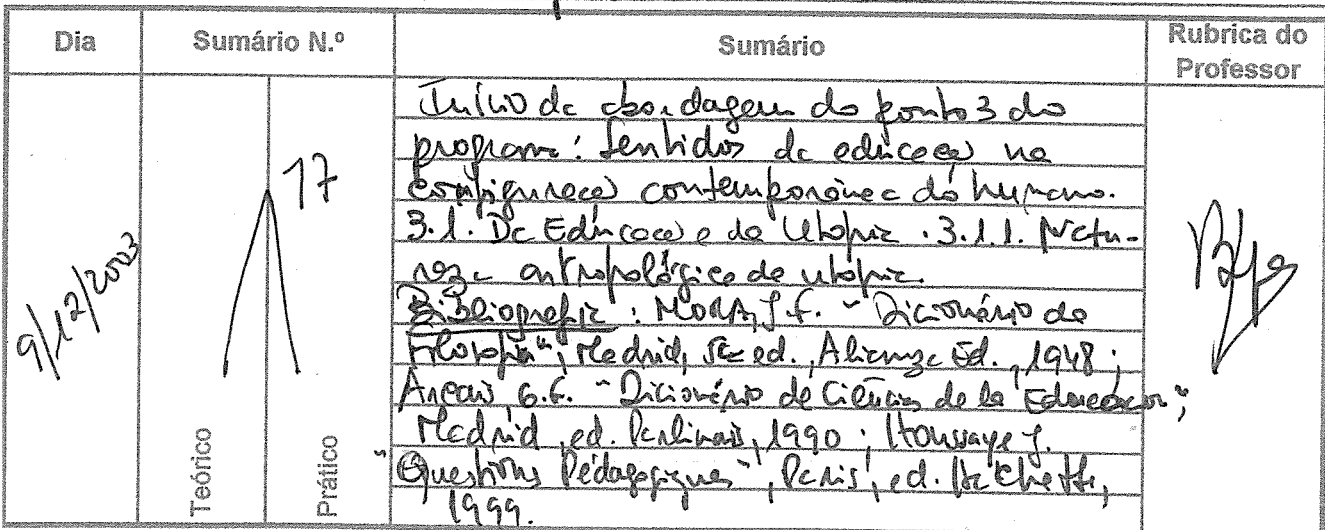 Dia
Sumário N.º
Sumário
Rubrica do
Professor
9/12/2003
17
Teórico
Prático
Início da abordagem do ponto 3 do
programa: Sentidos da educação na
configuração contemporânea do humano.
3.1. Da Educação e da Utopia. 3.1.1. Natu-
reza antropológica da utopia.
Bibliografia: MORA, J.F. "Dicionário de
Filosofia", Madrid, ed., Alianza Ed., 1948;
G.G. "Dicionário de Ciências de la Educacion",
Madrid, ed. 1990; Houssaye J.
"Questions Pédagogiques", Paris, ed. Hachette,
1999.